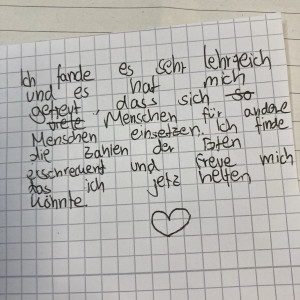 Ich fande es sehr lehrgeich
und es hat mich
gefreut, dass sich so
viele Menschen für andere
Menschen einsetzen. Ich finde
die Zahlen der Toten
erschreckent und freue mich
das ich jetz helfen
könnte